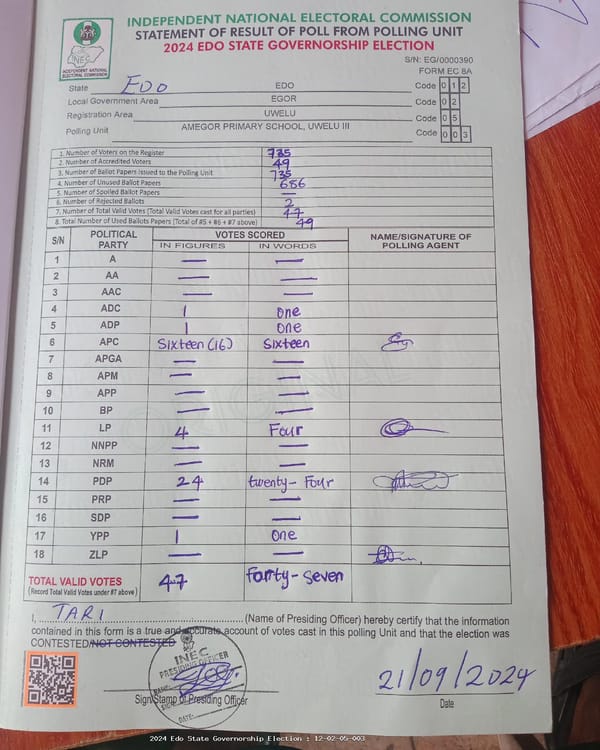 INDEPENDENT NATIONAL ELECTORAL COMMISSION
STATEMENT OF RESULT OF POLL FROM POLLING UNIT
2024 EDO STATE GOVERNORSHIP ELECTION
INEC
INDEPENDENT NATIONAL ELECTORAL COMMISSION
S/N: EG/0000390
FORM EC 8A
State EDO EDO Code 0 1 2
Local Government Area EGOR Code 0 2
Registration Area UWELU Code 0 5
Polling Unit AMEGOR PRIMARY SCHOOL, UWELU III Code 0 0 3
1. Number of Voters on the Register 735
2. Number of Accredited Voters 49
3. Number of Ballot Papers Issued to the Polling Unit 735
4. Number of Unused Ballot Papers 686
5. Number of Spoiled Ballot Papers —
6. Number of Rejected Ballots 2
7. Number of Total Valid Votes (Total Valid Votes cast for all parties) 47
8. Total Number of Used Ballots Papers (Total of #5 + #6 + #7 above) 49
S/N POLITICAL PARTY VOTES SCORED NAME/SIGNATURE OF POLLING AGENT
IN FIGURES IN WORDS
1 A — —
2 AA — —
3 AAC — —
4 ADC 1 One
5 ADP 1 One
6 APC Sixteen (16) Sixteen
7 APGA — —
8 APM — —
9 APP — —
10 BP — —
11 LP 4 Four
12 NNPP — —
13 NRM — —
14 PDP 24 twenty-Four
15 PRP — —
16 SDP — —
17 YPP 1 One
18 ZLP — —
TOTAL VALID VOTES 47 Forty-Seven
(Record Total Valid Votes under #7 above)
I, TARI (Name of Presiding Officer) hereby certify that the information
contained in this form is a true and accurate account of votes cast in this polling Unit and that the election was
CONTESTED/NOT CONTESTED
INEC
PRESIDING OFFICER
DATE:
Sign/Stamp of Presiding Officer
21/09/2024
Date
2024 Edo State Governorship Election : 12-02-05-003